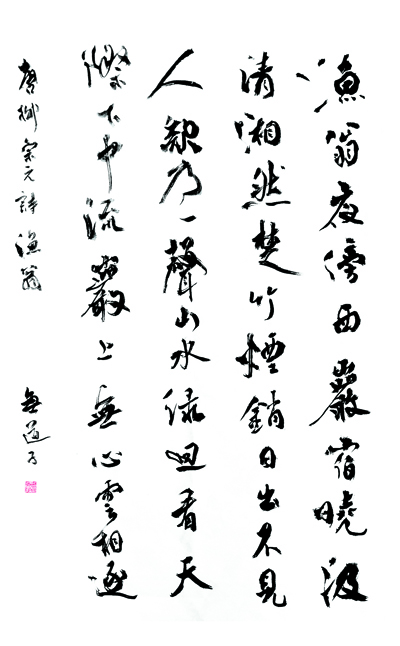 漁翁夜傍西巖宿曉汲
清湘然楚竹煙銷日出不見
人欸乃一聲山水綠回看天
際下中流巖上無心雲相逐
唐柳宗元詩漁翁
無道